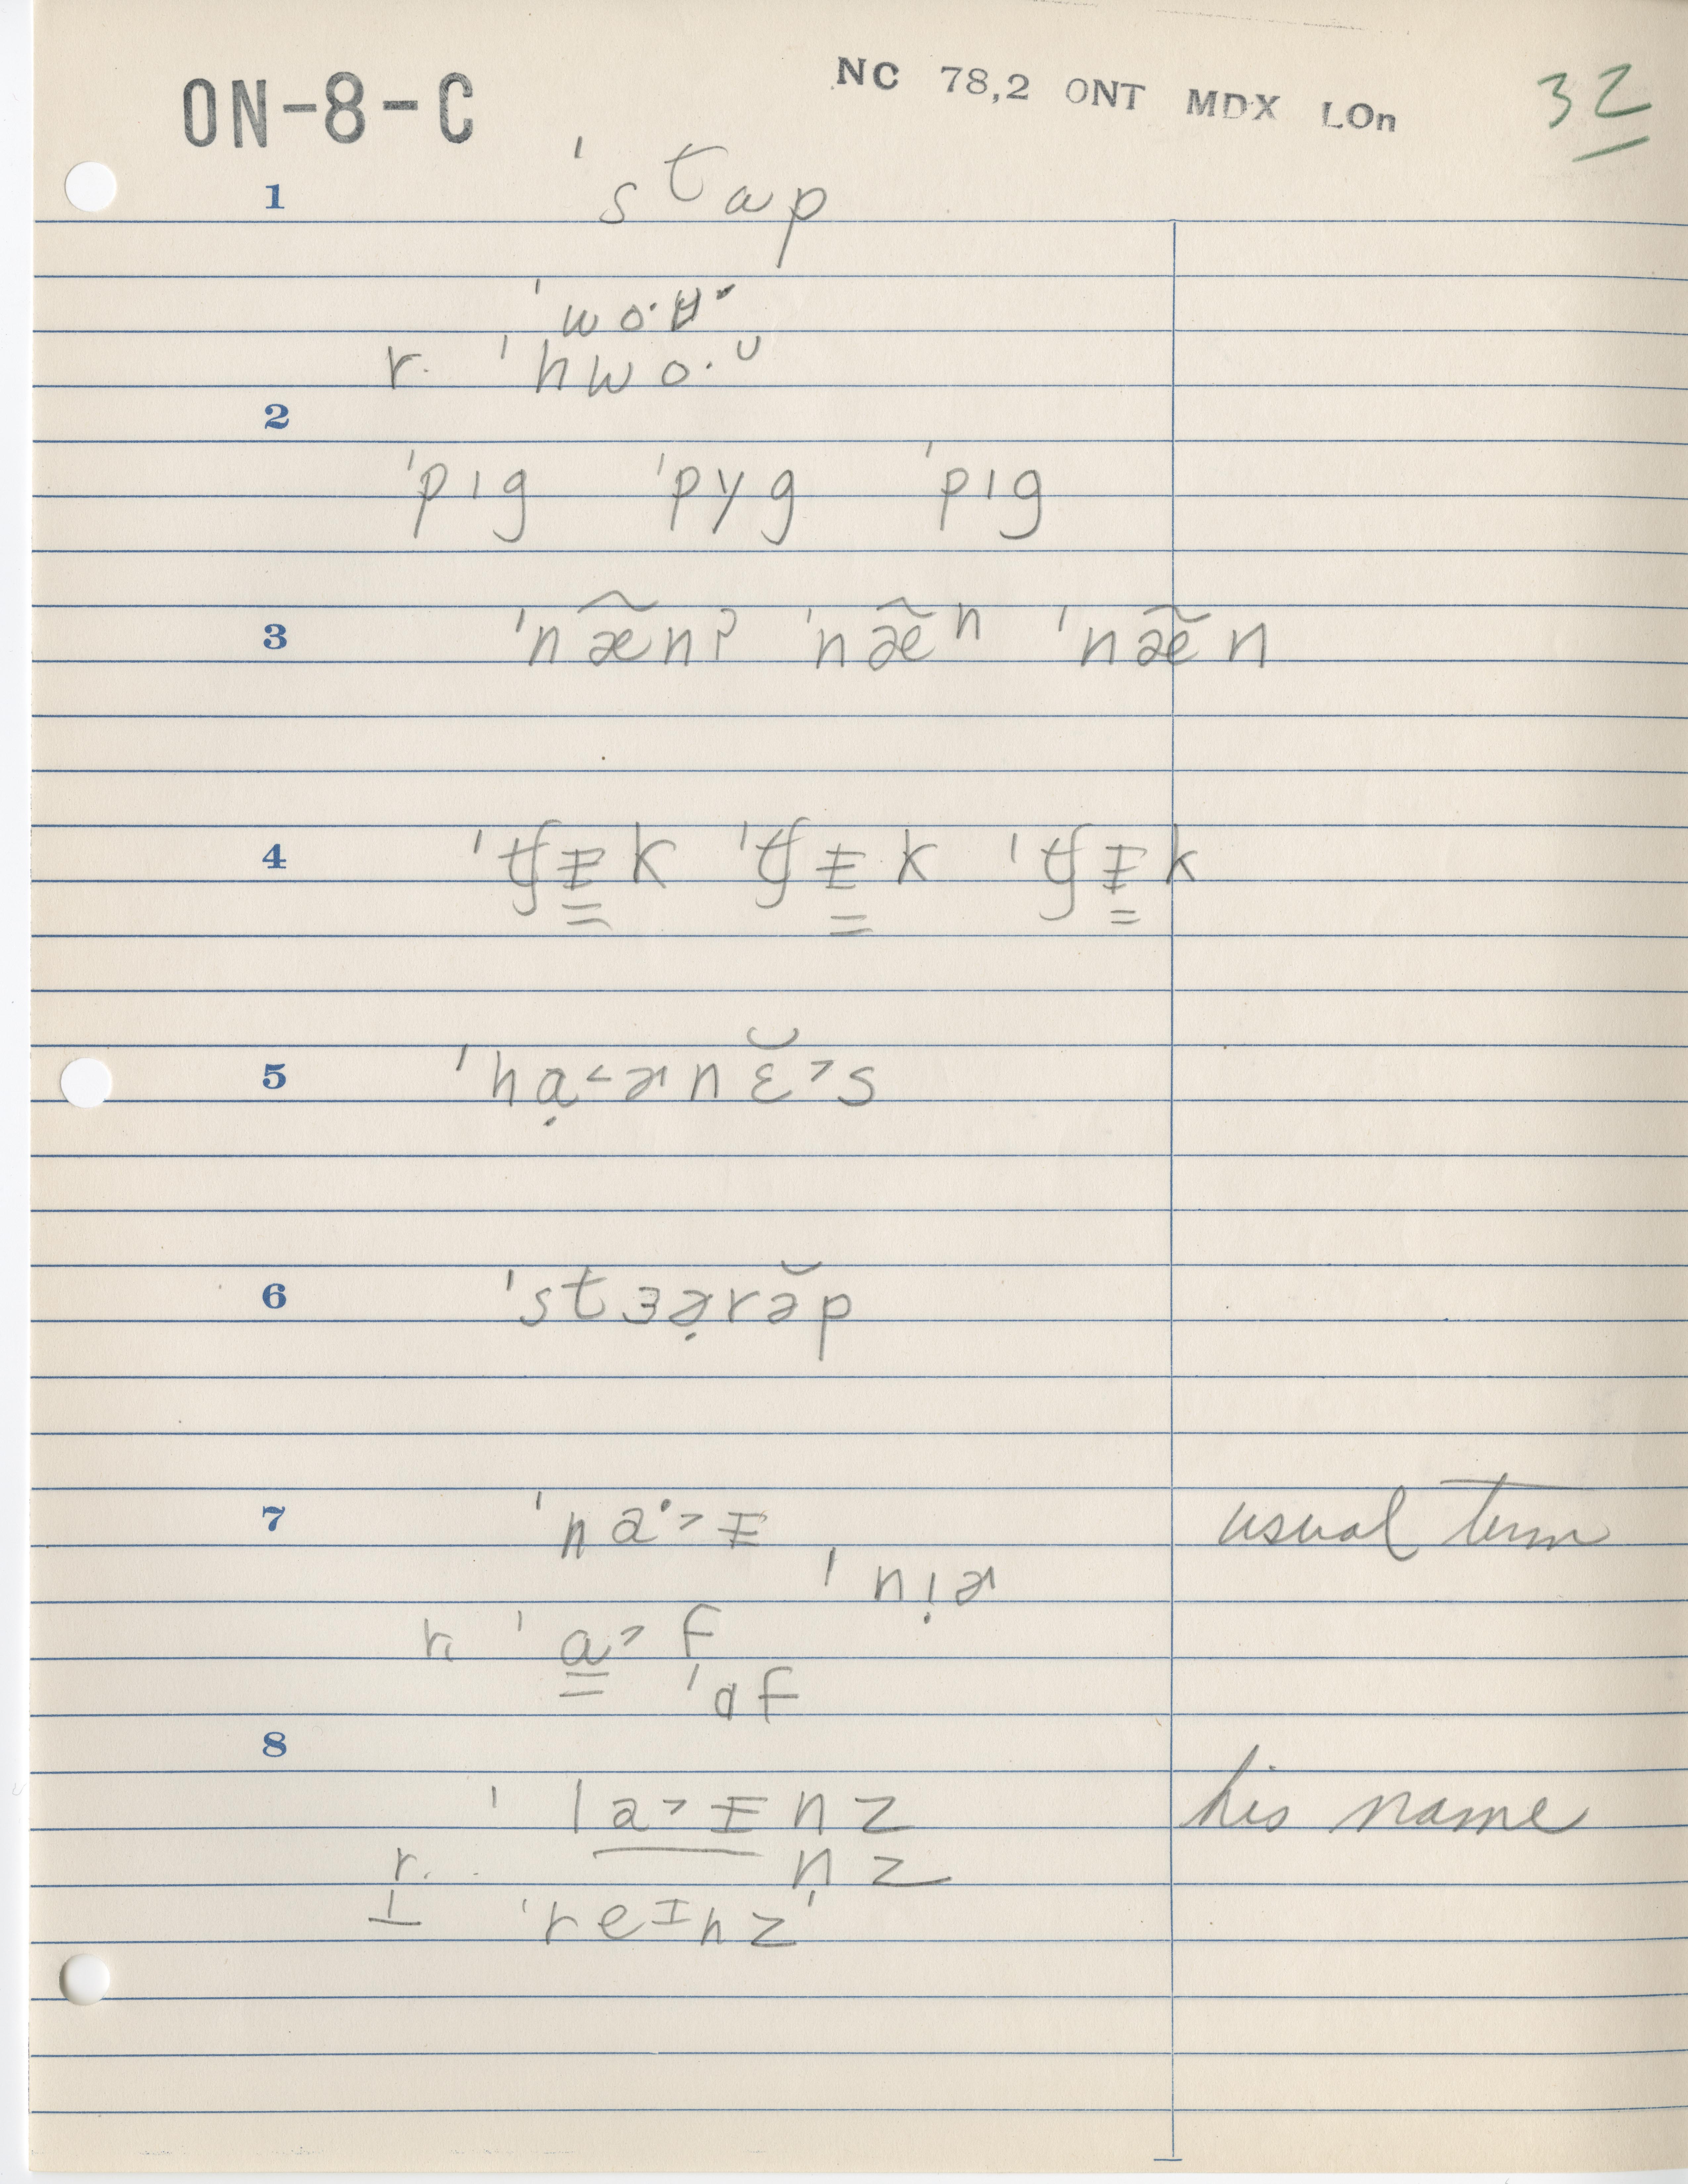 ON-8-C NC 78,2 ONT MDX LOn 32
1 ˈstap
r. ˈhwo·ᴜ
2
ˈpɪg ˈpyg ˈpɪg
3 ˈnæ̃nʔ ˈnæ̃ⁿ ˈnæ̃n
4 ˈʧɪ̵̳k ˈʧɪ̵̳k ˈʧɪ̵̳k
5 ˈhạ˂ɚnɛ̆˃s
6 ˈstɜɚ̣rə̆p
7 ˈna·˃ɪ̵ usual term
ˈnịɚ
r. ˈa̳˃f
ˈɑf
8
ˈla˃ɪ̵nz his name
r. n̩z
ˈreɪnzˈ